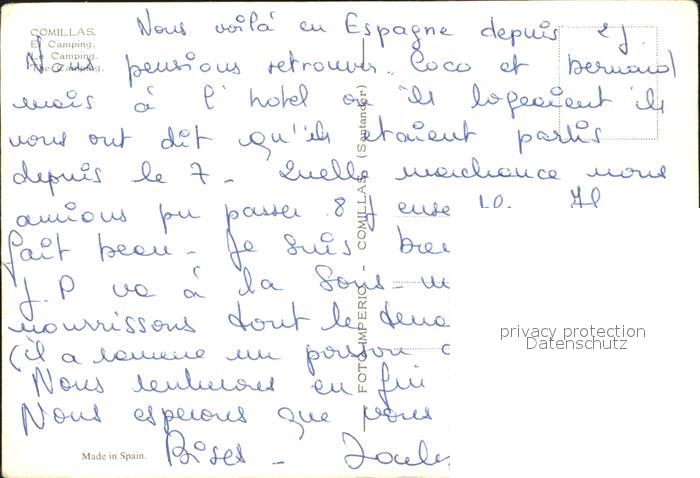 COMILLAS.
El Camping.
Le Camping.
The Camping.
Nous voilà en Espagne depuis 2 j.
Nous pensions retrouver Coco et Bernard
mais à l'hotel ou ils logeaient ils
vous ont dit qu'ils etaient partis
depuis le 7 - Quelle manchance nous
aurions pu passer 8 j ense Il
fait beau - Je suis
J.P va à la Sous-m
nourrissons dont le
(il a ramené un poisson
Nous rentrerons en fin
Nous esperons que vous
Bises -
FOTO IMPERIO - COMILLAS (Santander)
Made in Spain.
privacy protection
Datenschutz